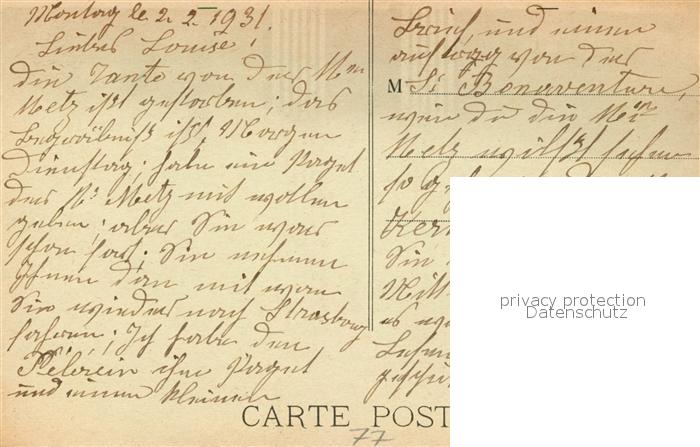 Montag le 2. 2. 1931.
Liebes Louise!
die Tante von der Mm
Metz ißt gestorben; das
Begräbniß ißt Morgen
Dienstag; habe ein Paget
der Sr Metz mit wollen
geben; aber Sie war
schon fort; Sie nehmen
Ihnen dan mit wan
Sie wieder nach Strasbourg
fahren; Ich habe den
Pélerin ihn Paget
und einen kleinen
Brief, und einen
auftrag von der
M Sr Bonaventure,
wen du die Mm
Metz wilßt sehen
so
Sie
Mitt
es
CARTE POST
77
privacy protection
Datenschutz